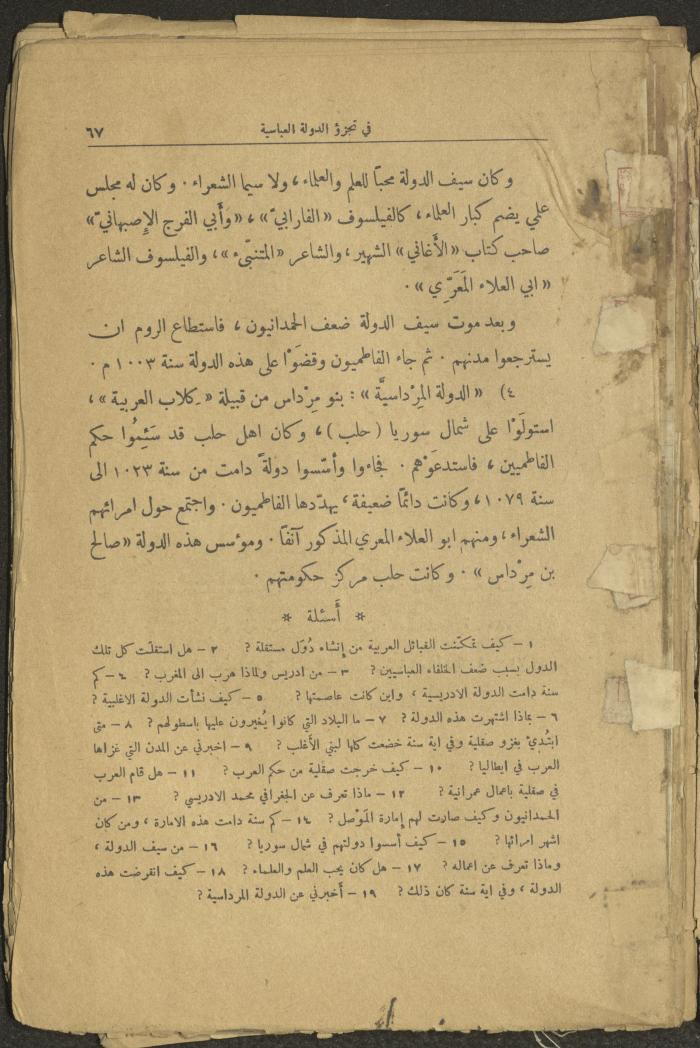 في تجزؤ الدولة العباسية ٦٧
وكان سيف الدولة محبّا للعلم والعلماء، ولا سيما الشعراء. وكان له مجلس
علمي يضم كبار العلماء، كالفيلسوف «الفارابيّ»، «وأَبي الفرج الإِصبهانيّ»
صاحب كتاب «الأَغاني» الشهير، والشاعر «المتنبّيء»، والفيلسوف الشاعر
«ابي العلاء المَعَرِّي».
وبعد موت سيف الدولة ضعف الحمدانيون، فاستطاع الروم ان
يسترجعوا مدنهم. ثم جاء الفاطميون وقضَوْا على هذه الدولة سنة ١٠٠٣ م.
٤) «الدولة المِرْداسيَّة»: بنو مِرْداس من قبيلة «كلاب العربية»،
استولَوْا على شمال سوريا (حلب)، وكان اهل حلب قد سَئِمُوا حكم
الفاطميين، فاستدعَوْهم. فجاءوا وأسّسوا دولةً دامت من سنة ١٠٢٣ الى
سنة ١٠٧٩، وكانت دائمًا ضعيفة، يهدّدها الفاطميون. واجتمع حول امرائهم
الشعراء، ومنهم ابو العلاء المعري المذكور آنفًا. ومؤسس هذه الدولة «صالح
بن مِرْداس». وكانت حلب مركز حكومتهم.
* أَسئلة *
١ – كيف تمكّنت القبائل العربية من إنشاء دُوَل مستقلة؟ ٢ – هل استقلّت كل تلك
الدول بسبب ضعف الخلفاء العباسيين؟ ٣ – من ادريس ولماذا هرب الى المغرب؟ ٤ – كم
سنة دامت الدولة الادريسية، واين كانت عاصمتها؟ ٥ – كيف نشأت الدولة الاغلبية؟
٦ – بماذا اشتهرت هذه الدولة؟ ٧ – ما البلاد التي كانوا يُغيرون عليها باسطولهم؟ ٨ – متى
ابتُدئ بغزو صقلية وفي اية سنة خضعت كلها لبني الأَغلب؟ ٩ – اخبرني عن المدن التي غزاها
العرب في ايطاليا؟ ١٠ – كيف خرجت صقلية من حكم العرب؟ ١١ – هل قام العرب
في صقلية باعمال عمرانية؟ ١٢ – ماذا تعرف عن الجغرافي محمد الادريسي؟ ١٣ – من
الحمدانيون وكيف صارت لهم إمارة المَوْصل؟ ١٤ – كم سنة دامت هذه الامارة، ومن كان
اشهر امرائها؟ ١٥ – كيف أسسوا دولتهم في شمال سوريا؟ ١٦ – من سيف الدولة،
وماذا تعرف عن اعماله؟ ١٧ – هل كان يحب العلم والعلماء؟ ١٨ – كيف انقرضت هذه
الدولة، وفي اية سنة كان ذلك؟ ١٩ – أَخبرني عن الدولة المرداسية؟